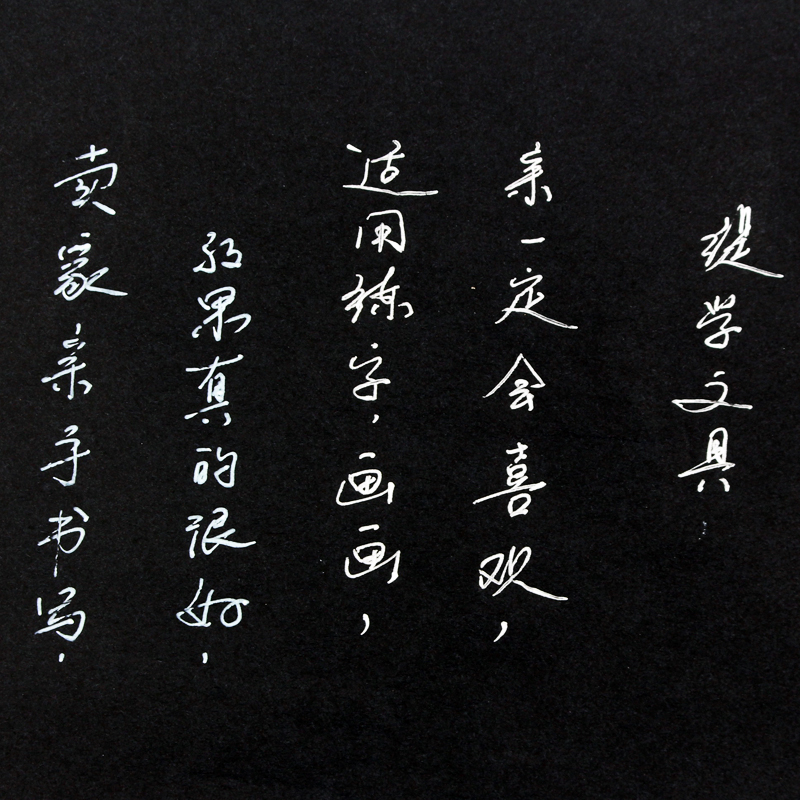 提学文具
亲一定会喜欢，
适用练字，画画，
效果真的很好，
卖家亲手书写，